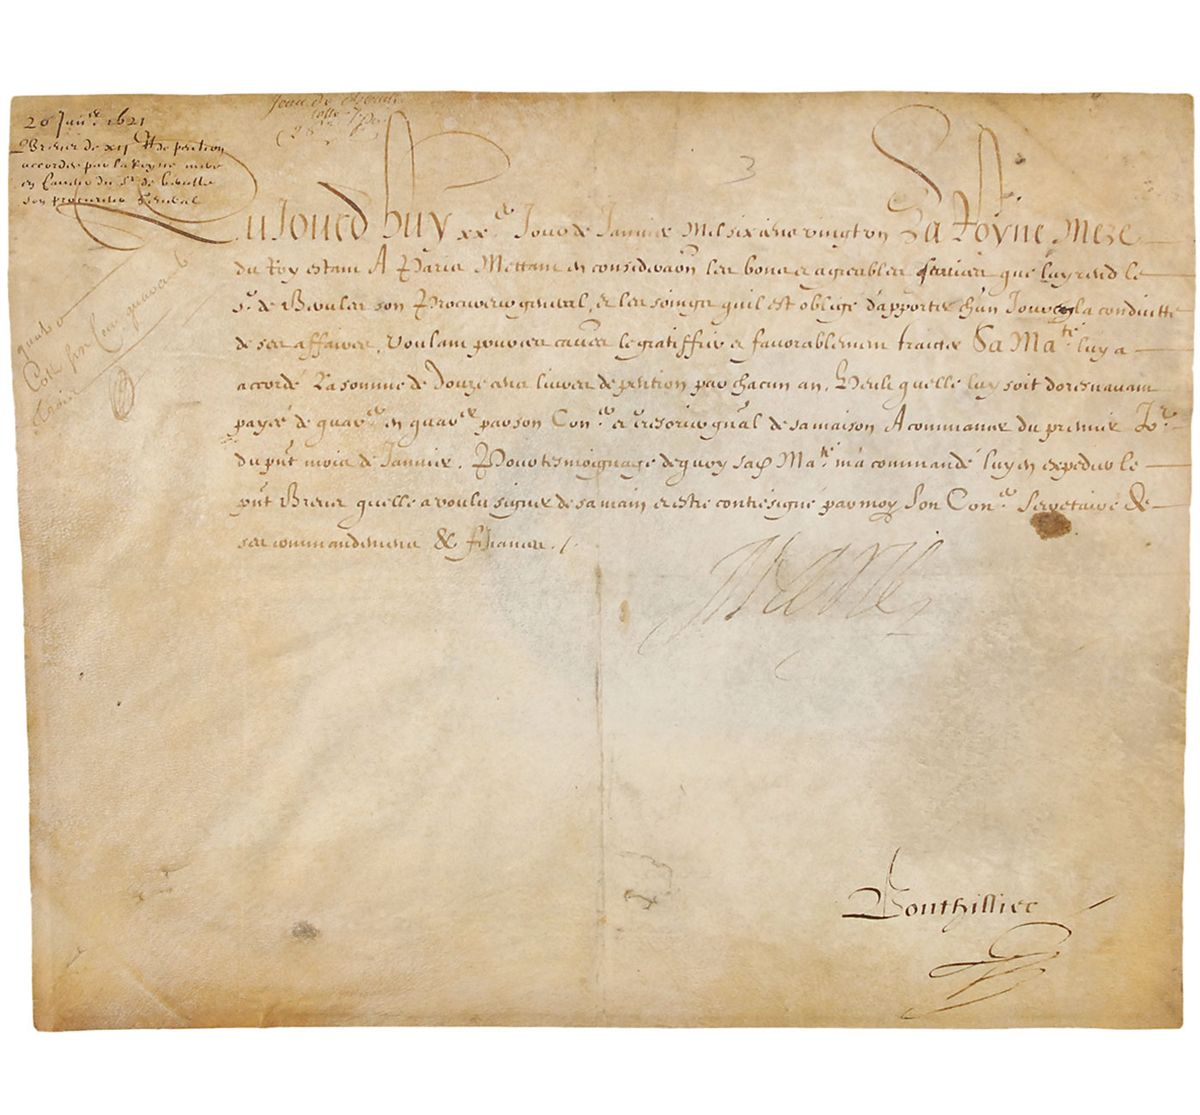 20 Janr. 1621
Brevet de XII ctt de pention
accordée par la Royne mere
en faveur du Sr. de
son procureur general
3
Aujourdhuy xxe. Jour de Janvier Mil six cens vingt un La Royne Mere
du Roy estant A Paris Mettant en consideraon les bons et agreables services que luy rend le
Sr. de son Procureur general, et les soings quil est obligé d'apporter chun Jour en la conduitte
de ses affaires, Voulant pour ces causes le gratiffier et favorablement traicter Sa Mate luy a
accordé La somme de Douze cens livres de pention par chacun an, Veult quelle luy soit doresnavant
payée de quaer en quaer par son Coner et tresorier gnal de sa maison A commancer du premier Jor
du pnt mois de Janvier. Pour tesmoignage de quoy sad Mate m'a commandé luy en expedier le
pnt Brevet quelle a voulu signer de sa main et estre contresigné par moy Son Coner Secretaire de
ses commandemens & finances ./.
Marie
Bouthillier